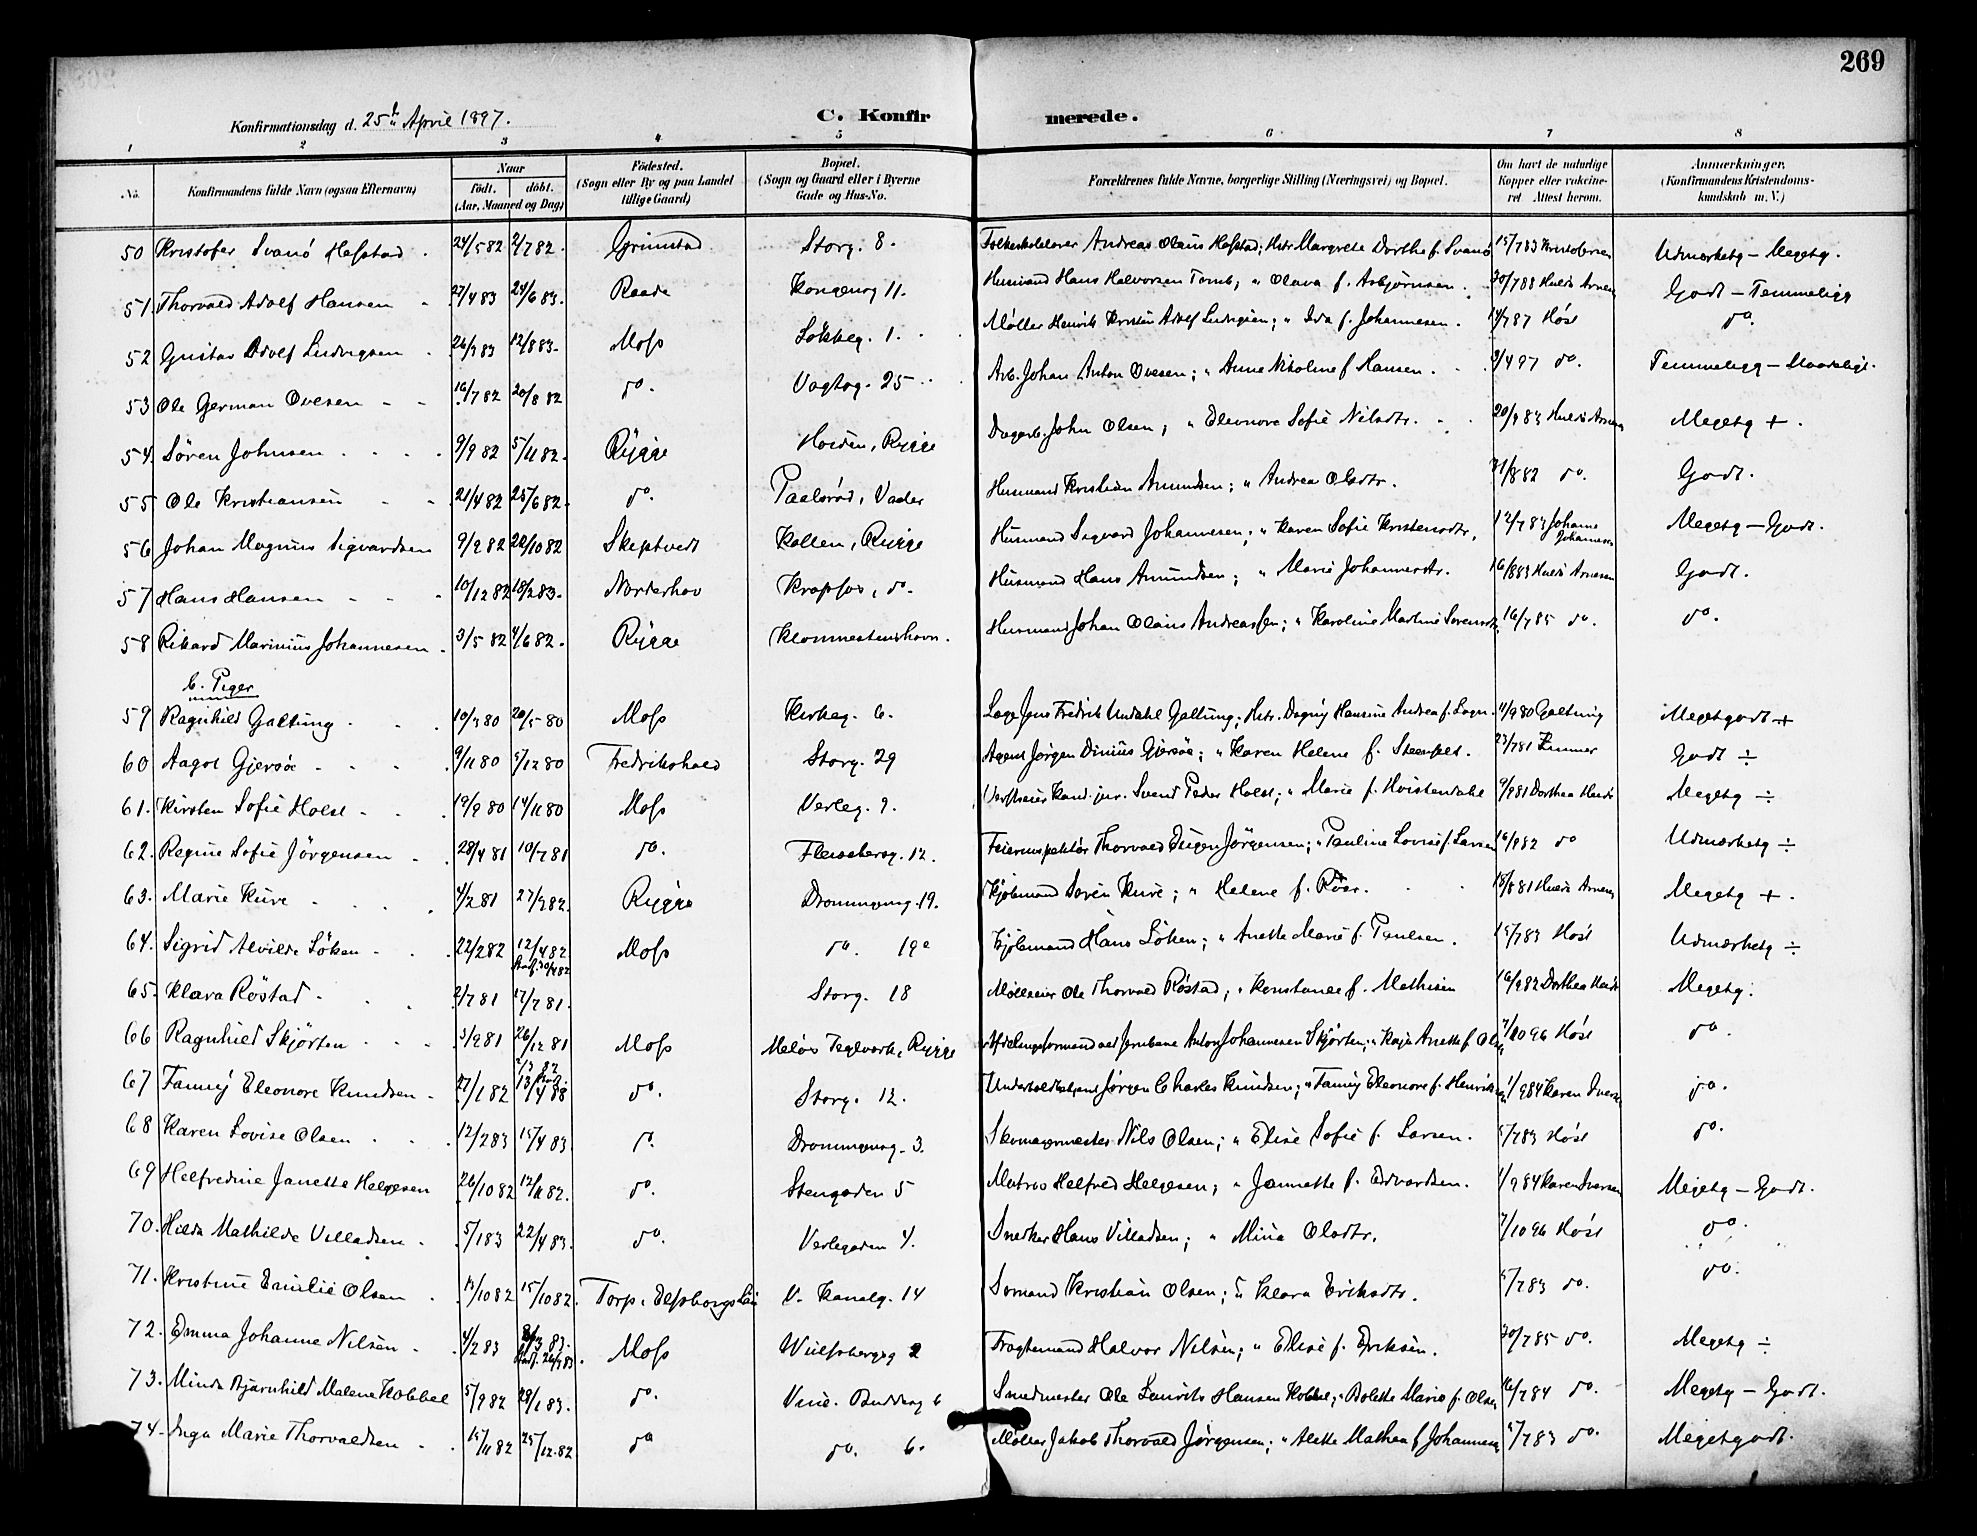 269
Konfirmationsdag d. 25de April 1897. C. Konfirmerede.
1 2 3 4 5 6 7 8
No. Konfirmandens fulde Navn (ogsaa Efternavn) Naar født. døbt. (Aar, Maaned og Dag) Fødested. (Sogn eller By og paa Landet tillige Gaard) Bopæl. (Sogn og Gaard eller i Byerne Gade og Hus-No. Forældrenes fulde Navne, borgerlige Stilling (Næringsvei) og Bopæl. Om havt de naturlige Kopper eller vakcineret. Attest herom. Anmærkninger. (Konfirmandens Kristendomskundskab m. V.)
50 Kristofer Svanø Hofstad 24/5 82 2/7 82 Grimstad Storg. 8. Folkeskolelærer Andreas Olaus Hofstad; Hstr. Margrete Dorthe f. Svanø 15/7 83 Kristofersen Udmærketg - Megetg.
51. Thorvald Adolf Hansen 27/4 83 24/6 83. Raade Kongensg 11. Husmand Hans Halvorsen Tomb; " Olava f. Asbjørnsen. 30/7 88 Huldis Arnesen Godt - Temmeligg
52 Gustav Adolf Ludvigsen 26/3 83 12/8 83. Moss Løkkeg. 1. Møller Henrik Kristian Adolf Ludvigsen; " Ida f. Johannesen. 14/7 87 Høst do.
53 Ole German Ovesen 16/7 82 20/8 82 do. Vogtsg. 25 Arb. Johan Anton Ovesen; " Anne Nikoline f. Hansen. 3/4 97 do. Temmeligg - Maadelig.
54. Sören Johnsen 9/9 82 5/11 82. Rygge Hoiden, Rygge Dagarb. John Olsen; " Eleonora Sofie Nilsdtr. 20/9 83 Huldis Arnesen Megetg +.
55 Ole Kristiansen 21/4 82 25/6 82. do. Paalsrød, Vaaler Husmand Kristian Amundsen; " Andrea Olsdtr. 31/8 82 do. Godt.
56 Johan Magnus Sigvardsen 9/9 82 22/10 82 Skiptvedt Kallen, Rygge Husmand Sigvard Johannesen; " Karen Sofie Kristensdtr. 12/7 83 Johanne Johannesen Megetg - Godt.
57 Hans Hansen 10/12 82 18/2 83. Norderhov Kropfos, do. Husmand Hans Amundsen; " Marie Johannesdtr. 16/8 83 Huldis Arnesen Godt.
58 Rikard Marinius Johannesen 3/5 82 4/6 82. Rygge Klommestenshavn. Husmand Johan Olaus Andreassen; " Karoline Martine Sørensdtr. 16/7 85 do. do.
b. Piger
59 Ragnhild Galtung 10/3 80 20/5 80 Moss Kirkeg. 6. Læge Jens Fredrik Undahl Galtung; Hstr. Dagny Hansine Andrea f. Logn. 11/9 80 Galtung Megetgodt +
60 Aagot Gjersøe 9/11 80 5/12 80 Fredrikshald Storg. 29 Agent Jørgen Dinius Gjersøe; " Karen Helene f. Steenfelt. 23/7 81 Zimmer Godt ÷
61. Kirsten Sofie Holst 19/9 80 14/11 80 Moss Verleg. 9. Værftseier Kand. jur. Svend Peder Holst; " Marie f. Hvistendahl 9/9 81 Dorthea Heide Megetg ÷
62. Regine Sofie Jörgensen 28/4 81 10/7 81 do. Fleischersg. 12. Feierinspektør Thorvald Eugen Jørgensen; " Pauline Lovise f. Larsen 16/9 82 do Udmærketg ÷
63. Marie Kure 4/2 81 27/3 82. Rygge Dronningensg. 19. Kjøbmand Søren Kure; " Helene f. Roer. 18/8 81 Huldis Arnesen Megetg +.
64. Sigrid Alvilde Söken 22/2 82 12/4 82 Stadf. 30/4 82 Moss do. 19a Kjøbmand Hans Söken; " Anette Marie f. Paulsen. 15/7 83 Høst Udmærketg ÷
65. Klara Röstad 2/7 81 17/7 81. Storg. 18 Mølleeier Ole Thorvald Røstad; " Konstance f. Mathisen 16/9 82 Dorthea Heide Megetg.
66 Ragnhild Skjørten 3/9 81 26/12 81 Moss Meløs Teglværk, Rygge Afdelingsformand ved Jernbane Anton Johannesen Skjørten; " Kaja Anette f. Olsen 7/10 96 Høst do.
67 Fanny Eleonore Knudsen 27/1 82 do. Storg. 12. Underholdtbetjent Jørgen Charles Knudsen; " Fanny Eleonore f. Henriksen 1/9 84 Karen Iversen do.
68 Karen Lovise Olsen 12/2 83 15/4 83. do. Dronningensg. 3. Skomagermester Nils Olsen; " Elise Sofie f. Larsen. 5/7 83 Høst do.
69 Helfredine Janette Helgesen 26/10 82 12/11 82. do. Stengaden 5 Matros Helfred Helgesen; " Jannette f. Edvardsen. 1/9 84 Karen Iversen Megetg - Godt.
70. Hilda Mathilde Villadsen 5/1 83 22/4 83. do. Verlegaden 4. Snedker Hans Villadsen; " Mina Olsdtr. 7/10 96 Høst do.
71. Kristine Emilie Olsen 13/10 82 15/10 82. Torp i Elfsborgs Län V. Kanalg. 14 Sømand Kristian Olsen; " Klara Eriksdtr. 5/7 83 do. do.
72. Emma Johanne Nilsen 4/2 83 Moss Wulfsbergsg 2 Fragtemand Halvor Nilsen; " Elise f. Eriksen. 30/7 85 do. Megetg ÷
73. Minda Bjarnhild Malene Kobbel 5/9 82 28/1 83. do. Vinc. Buddesg 6 Smedmester Ole Lauritz Hansen Kobbel; " Bolette Marie f. Olsen 16/7 84 do. Megetg - Godt.
74. Inga Marie Thorvaldsen 15/11 82 25/12 82 do do. 6. Møller Jakob Thorvald Jørgensen; " Alette Mathea f. Johannesen 5/7 83 do. Megetgodt.